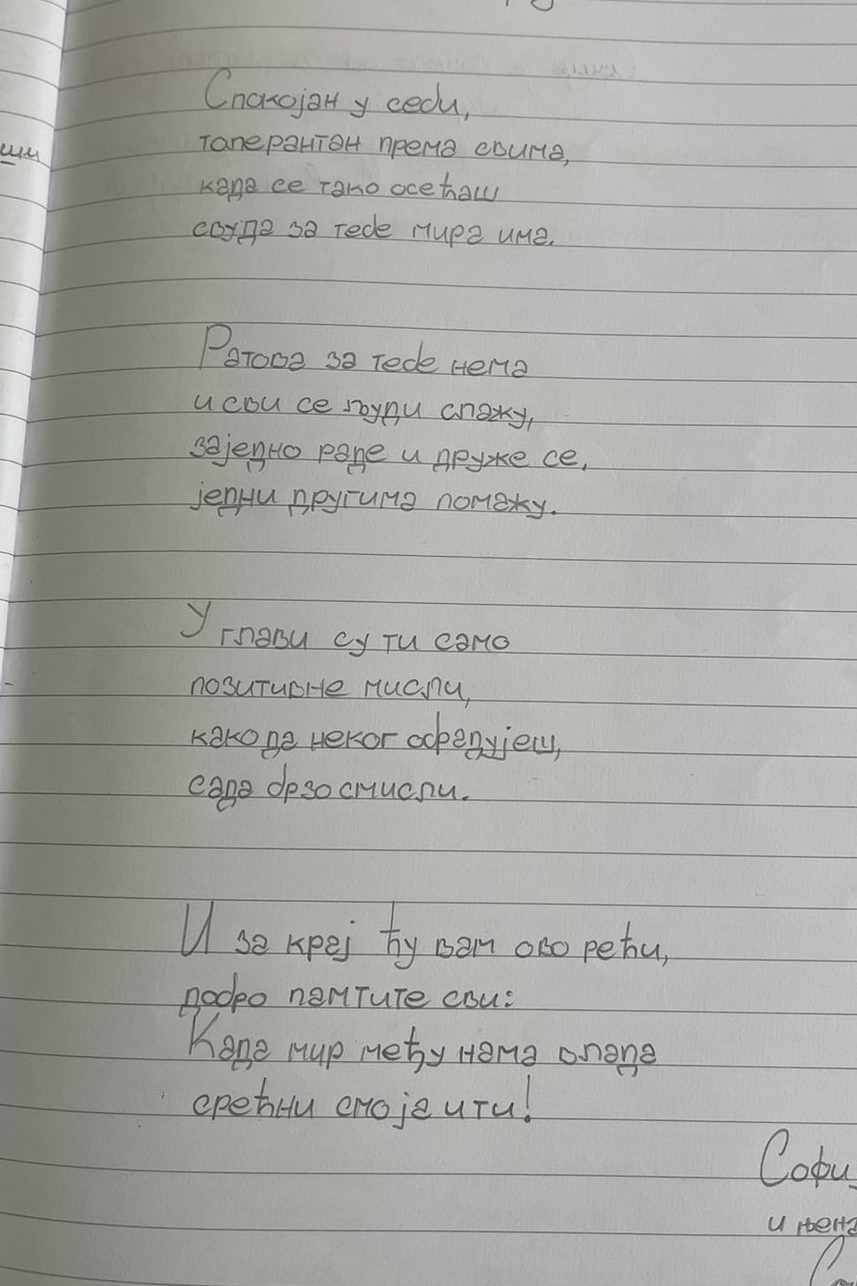 Спокојан у себи,
толерантан према свима,
када се тако осећаш
свуда за тебе мира има.
Ратова за тебе нема
и сви се људи слажу,
заједно раде и друже се,
једни другима помажу.
У глави су ти само
позитивне мисли,
како да неког обрадујеш,
сада брзо смисли.
И за крај ћу вам ово рећи,
добро памтите сви:
Када мир међу нама влада
срећни смо ја и ти!
Софи
и њена